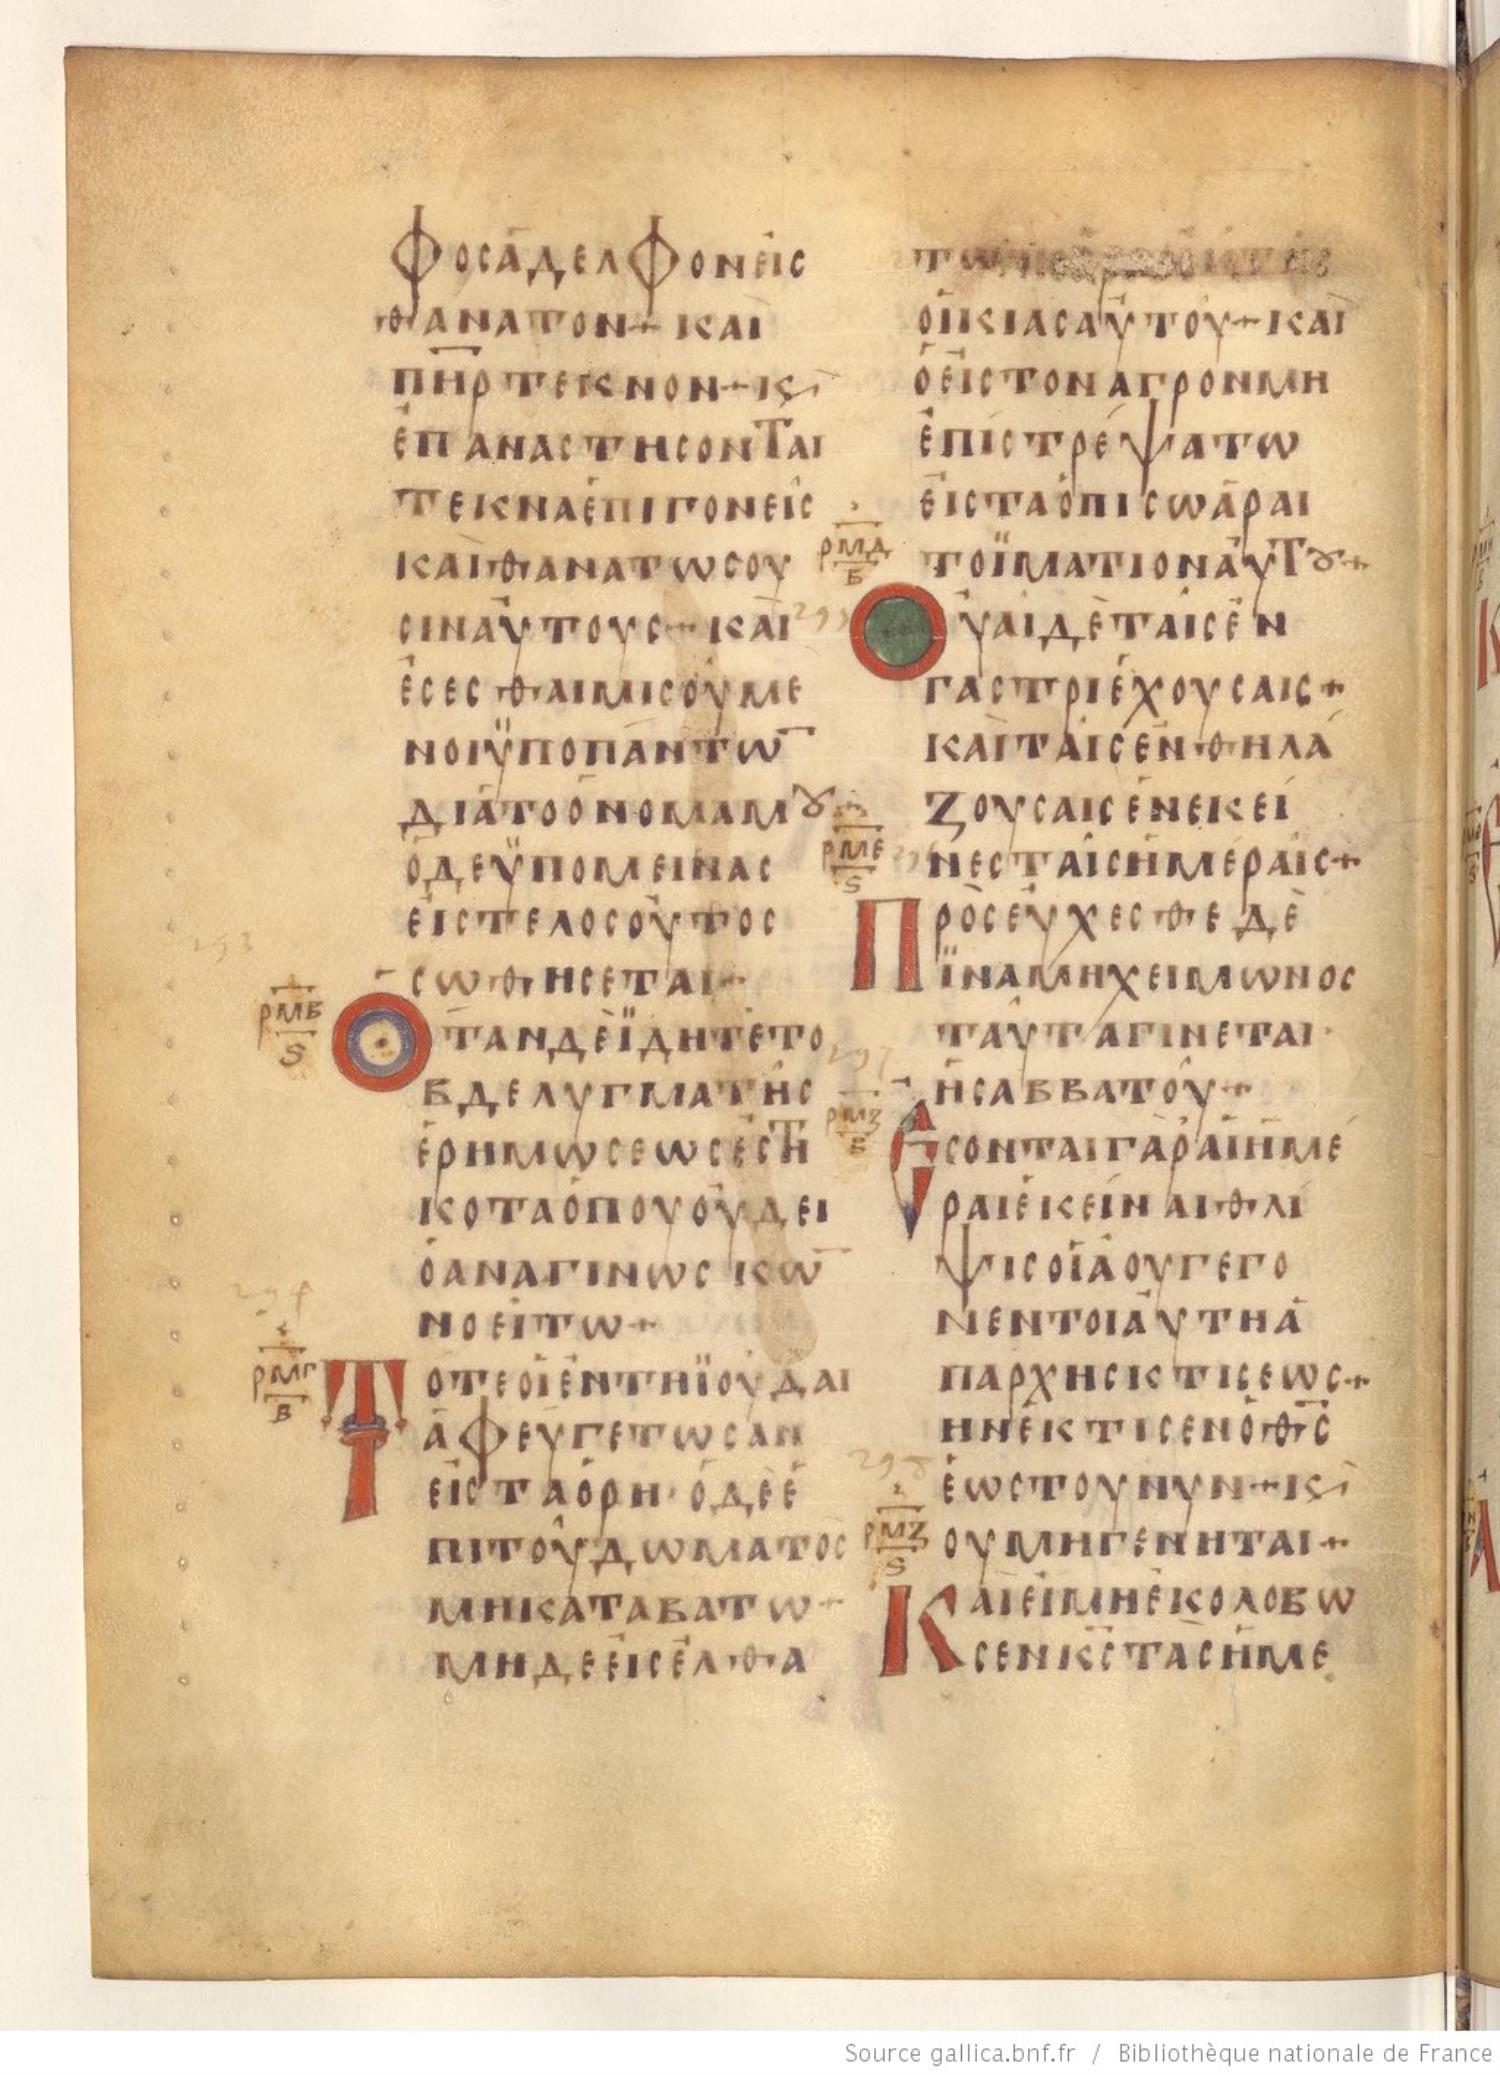 ΦΟСΑΔΕΛΦΟΝΕΙС
ΘΑΝΑΤΟΝ+ΚΑΙ
Π̅Η̅Ρ̅ΤΕΚΝΟΝ+Κϛ
ΕΠΑΝΑСΤΗСΟΝΤΑΙ
ΤΕΚΝΑΕΠΙΓΟΝΕΙС
ΚΑΙΘΑΝΑΤΩСΟΥ
СΙΝΑΥΤΟΥС+ΚΑΙ
ΕСΕСΘΑΙΜΙСΟΥΜΕ
ΝΟΙΫΠΟΠΑΝΤΩ̅
ΔΙΑΤΟΟΝΟΜΑΜȢ+
ΟΔΕΫΠΟΜΕΙΝΑС
ΕΙСΤΕΛΟСΟΥΤΟС
СΩΘΗСΕΤΑΙ+
ΡΜΒ
Ϛ
ΟΤΑΝΔΕΪΔΗΤΕΤΟ
ΒΔΕΛΥΓΜΑΤΗС
ΕΡΗΜΩСΕΩСΕСΤΗ
ΚΟΤΑΟΠΟΥΟΥΔΕΙ
ΟΑΝΑΓΙΝΩСΚΩ̅
ΝΟΕΙΤΩ+
294
ΡΜΓ
Β
ΤΟΤΕΟΙΕΝΤΗΪΟΥΔΑΙ
ΑΦΕΥΓΕΤΩСΑΝ
ΕΙСΤΑΟΡΗ·ΟΔΕΕ
ΠΙΤΟΥΔΩΜΑΤΟС
ΜΗΚΑΤΑΒΑΤΩ+
ΜΗΔΕΕΙСΕΛΘΑ
ΟΙΚΙΑСΑΥΤΟΥ+ΚΑΙ
ΟΕΙСΤΟΝΑΓΡΟΝΜΗ
ΕΠΙСΤΡΕΨΑΤΩ
ΕΙСΤΑΟΠΙСΩΑΡΑΙ
ΡΜΔ
Β
ΤΟΪΜΑΤΙΟΝΑΥΤȢ+
ΟΥΑΙΔΕΤΑΙСΕΝ
ΓΑСΤΡΙΕΧΟΥСΑΙС+
ΚΑΙΤΑΙСΕΝΘΗΛΑ
ΖΟΥСΑΙСΕΝΕΚΕΙ
ΡΜΕ
Ϛ
ΝΕСΤΑΙСΗΜΕΡΑΙС+
ΠΡΟСΕΥΧΕСΘΕΔΕ
ΪΝΑΜΗΧΕΙΜΩΝΟС
ΤΑΥΤΑΓΙΝΕΤΑΙ·
ΗСΑΒΒΑΤΟΥ+
ΕСΟΝΤΑΙΓΑΡΑΙΗΜΕ
ΡΑΙΕΚΕΙΝΑΙΘΛΙ
ΨΙСΟΙΑΟΥΓΕΓΟ
ΝΕΝΤΟΙΑΥΤΗΑ
ΠΑΡΧΗСΚΤΙСΕΩС+
ΗΝΕΚΤΙСΕΝΟΘ̅С̅
ΕΩСΤΟΥΝΥΝ+Κϛ
ΡΜΖ
Ϛ
ΟΥΜΗΓΕΝΗΤΑΙ+
ΚΑΙΕΙΜΗΕΚΟΛΟΒΩ
СΕΝΚ̅С̅ΤΑСΗΜΕ
Source gallica.bnf.fr / Bibliothèque nationale de France